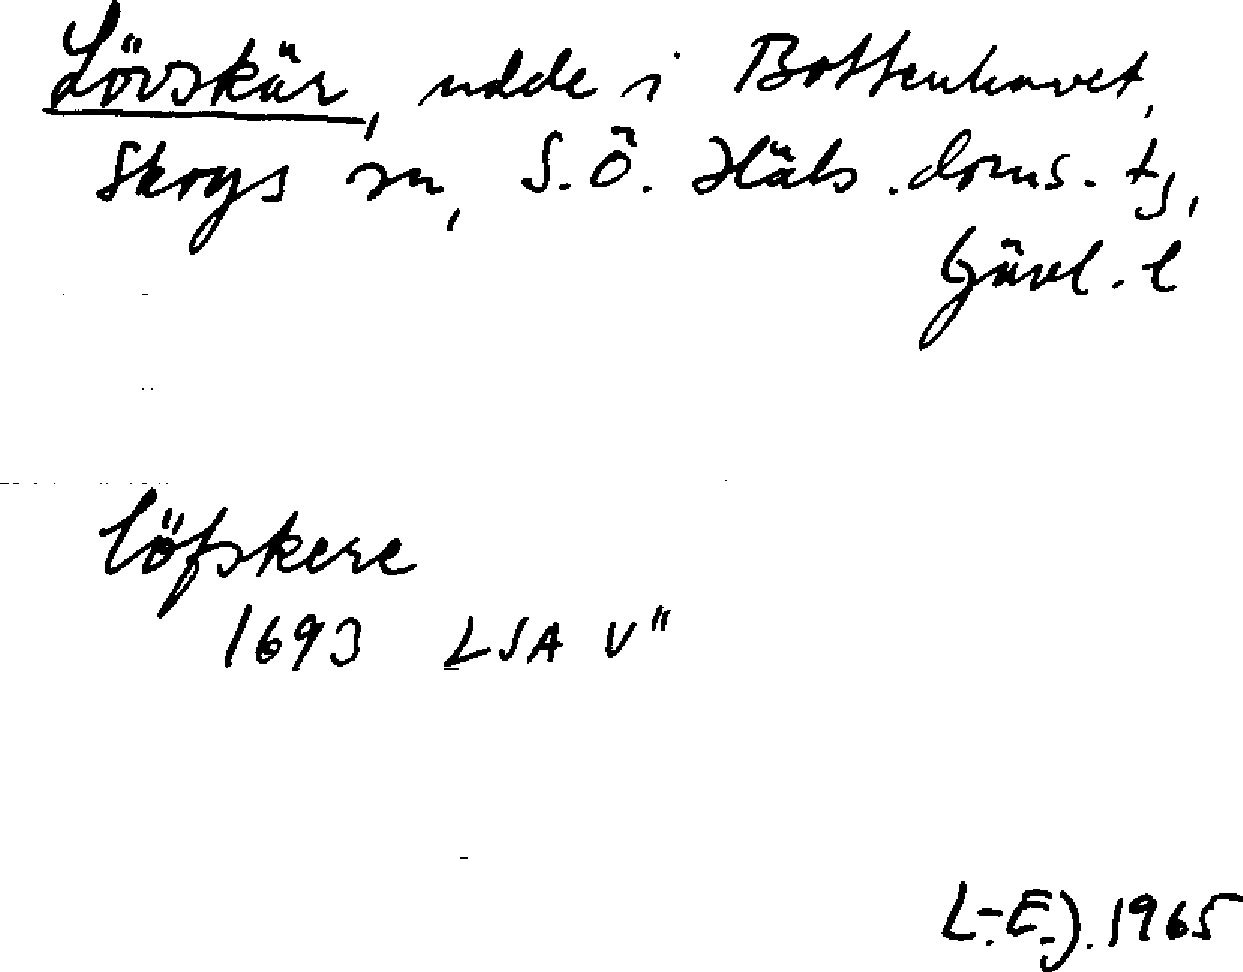 Lövskär, udde i Bottenhavet,
Skogs sn, S.Ö. Häls. doms. tg,
Gävl. l
Löfskere
1693 LSA V"
L.-E.J. 1965